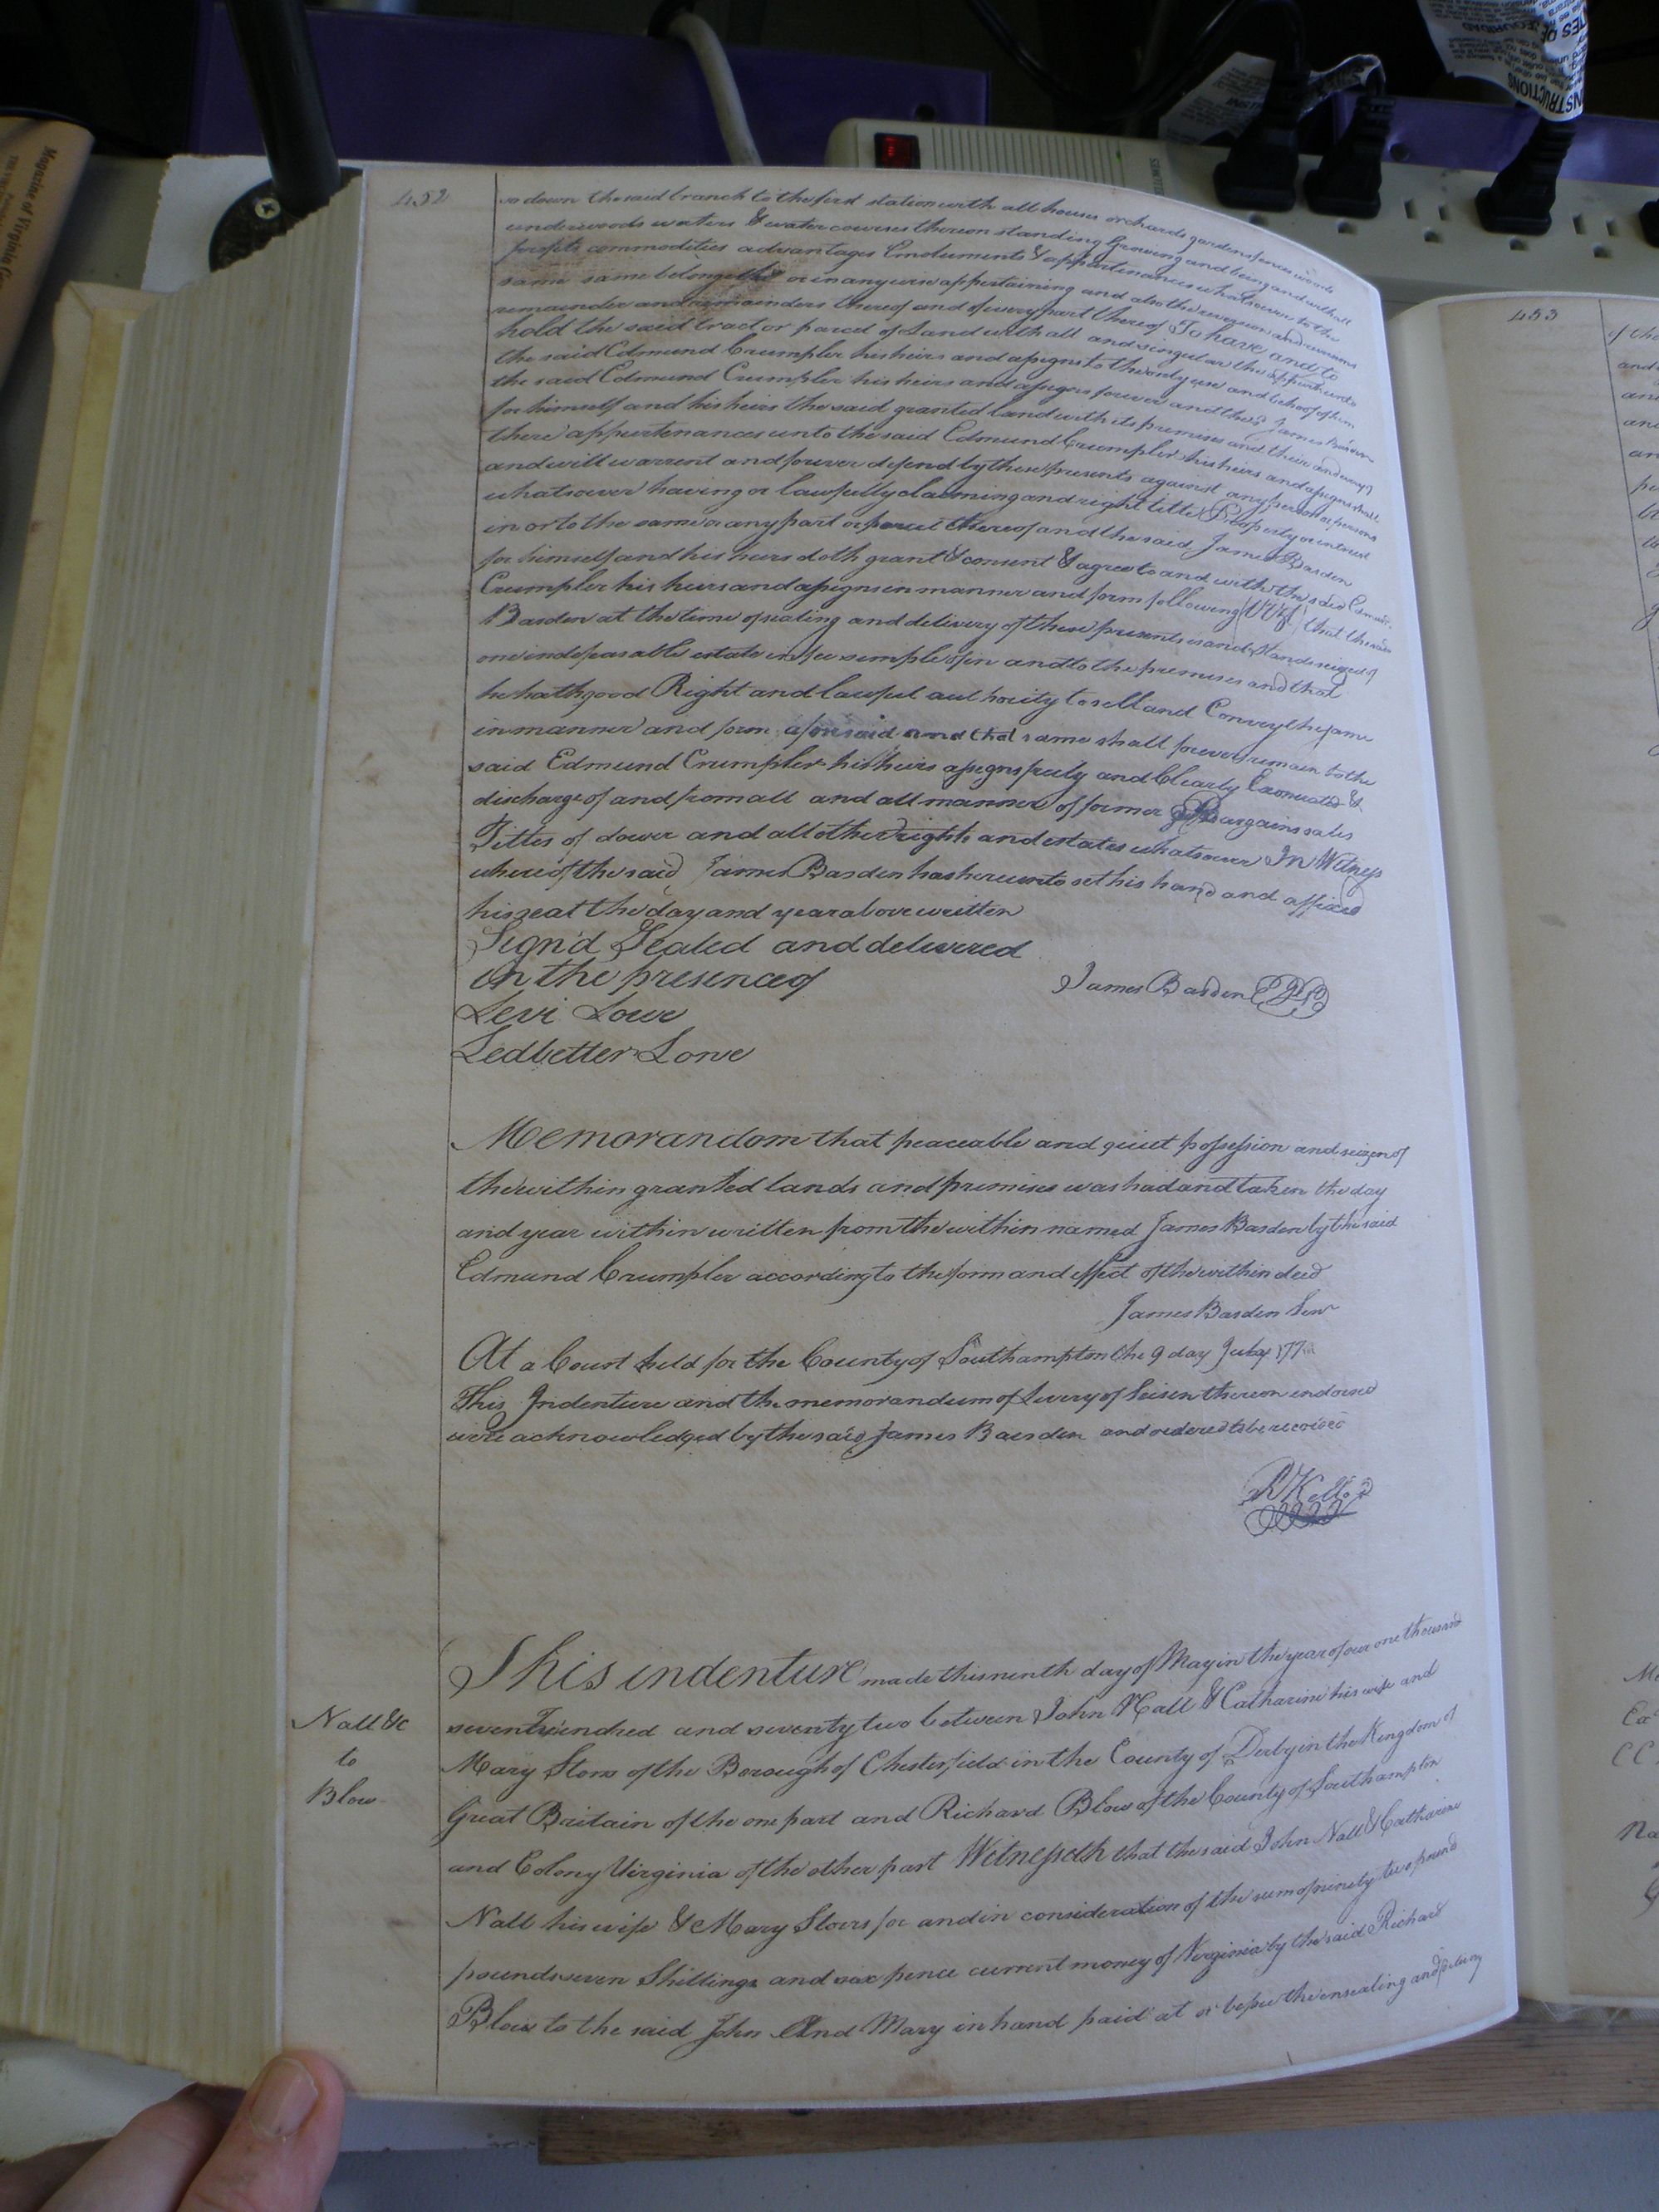 452
so down the said branch to the first station with all houses orchards gardens fences woods
underwoods waters & water courses thereon standing growing and being and with all
profits commodities advantages Emoluments & appurtenances whatsoever to the
same same belonging or in any wise appertaining and also the reversion and
remainder and remainders thereof and of every part thereof To have and to
hold the said tract or parcel of Land with all and singular the appurts unto
the said Edmund Crumpler his heirs and assigns to the only use and behoof of him
the said Edmund Crumpler his heirs and assigns forever and the sd James Basden
for himself and his heirs the said granted land with its premises and their and every
there appurtenances unto the said Edmund Crumpler his heirs and assigns shall
and will warrent and forever defend by these presents against any person or persons
whatsoever having or lawfully claiming and right title Property or intrest
in or to the same or any part or parcel thereof and the said James Basden
for himself and his heirs doth grant & consent & agree to and with the said Edmund
Crumpler his heirs and assigns in manner and form following (Viz) that the said
Basden at the time of sealing and delivery of these presents is and Stands seized of
one indefeasable estate in fee simple of in and to the premises and that
he hath good Right and lawful authority to sell and Convey the same
in manner and form aforesaid and that same shall forever remain to the
said Edmund Crumpler his heirs assigns freely and Clearly Exonerated &
discharge of and from all and all manner of former Bargains sales
Titles of dower and all other rights and estates whatsoever In Witness
whereof the said James Basden has hereunto set his hand and affixed
his seal the day and year above written
Sign'd Sealed and delivered
In the presence of
James Basden
Levi Lowe
Ledbetter Lowe
Memorandom that peaceable and quiet possession and seizen of
the within granted lands and premises was had and taken the day
and year within written from the within named James Basden by the said
Edmund Crumpler according to the form and effect of the within deed
James Basden Senr
At a Court held for the County of Southampton the 9 day July
This Indenture and the memorandum of Livery of Seisen thereon endorsed
were acknowledged by the said James Basden and ordered to be recorded
R Kello
This indenture made this ninth day of May in the year of our one thousand
seven Hundred and seventy two between John Nall & Catharine his wife and
Nall &c
to
Blow
Mary Stors of the Borough of Chesterfield in the County of Derby in the Kingdom of
Great Britain of the one part and Richard Blow of the County of Southampton
and Colony Virginia of the other part Witnesseth that the said John Nall & Catharine
Nall his wife & Mary Stors for and in consideration of the sum of ninety two pound
pounds seven Shillings and six pence current money of Virginia by the said Richard
Blow to the said John And Mary in hand paid at or before the ensealing and
453
Magazine of Virginia
INSTRUCTIONS